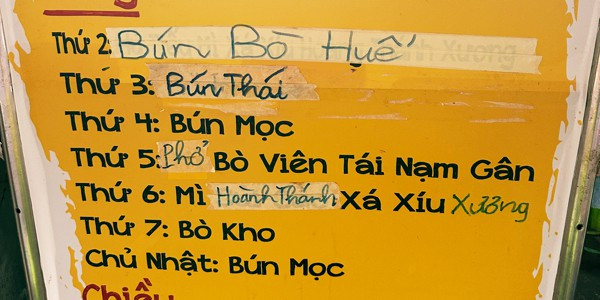 Thứ 2: Bún Bò Huế
Thứ 3: Bún Thái
Thứ 4: Bún Mọc
Thứ 5: Phở Bò Viên Tái Nạm Gân
Thứ 6: Mì Hoành Thánh Xá Xíu Xương
Thứ 7: Bò Kho
Chủ Nhật: Bún Mọc
Chiều